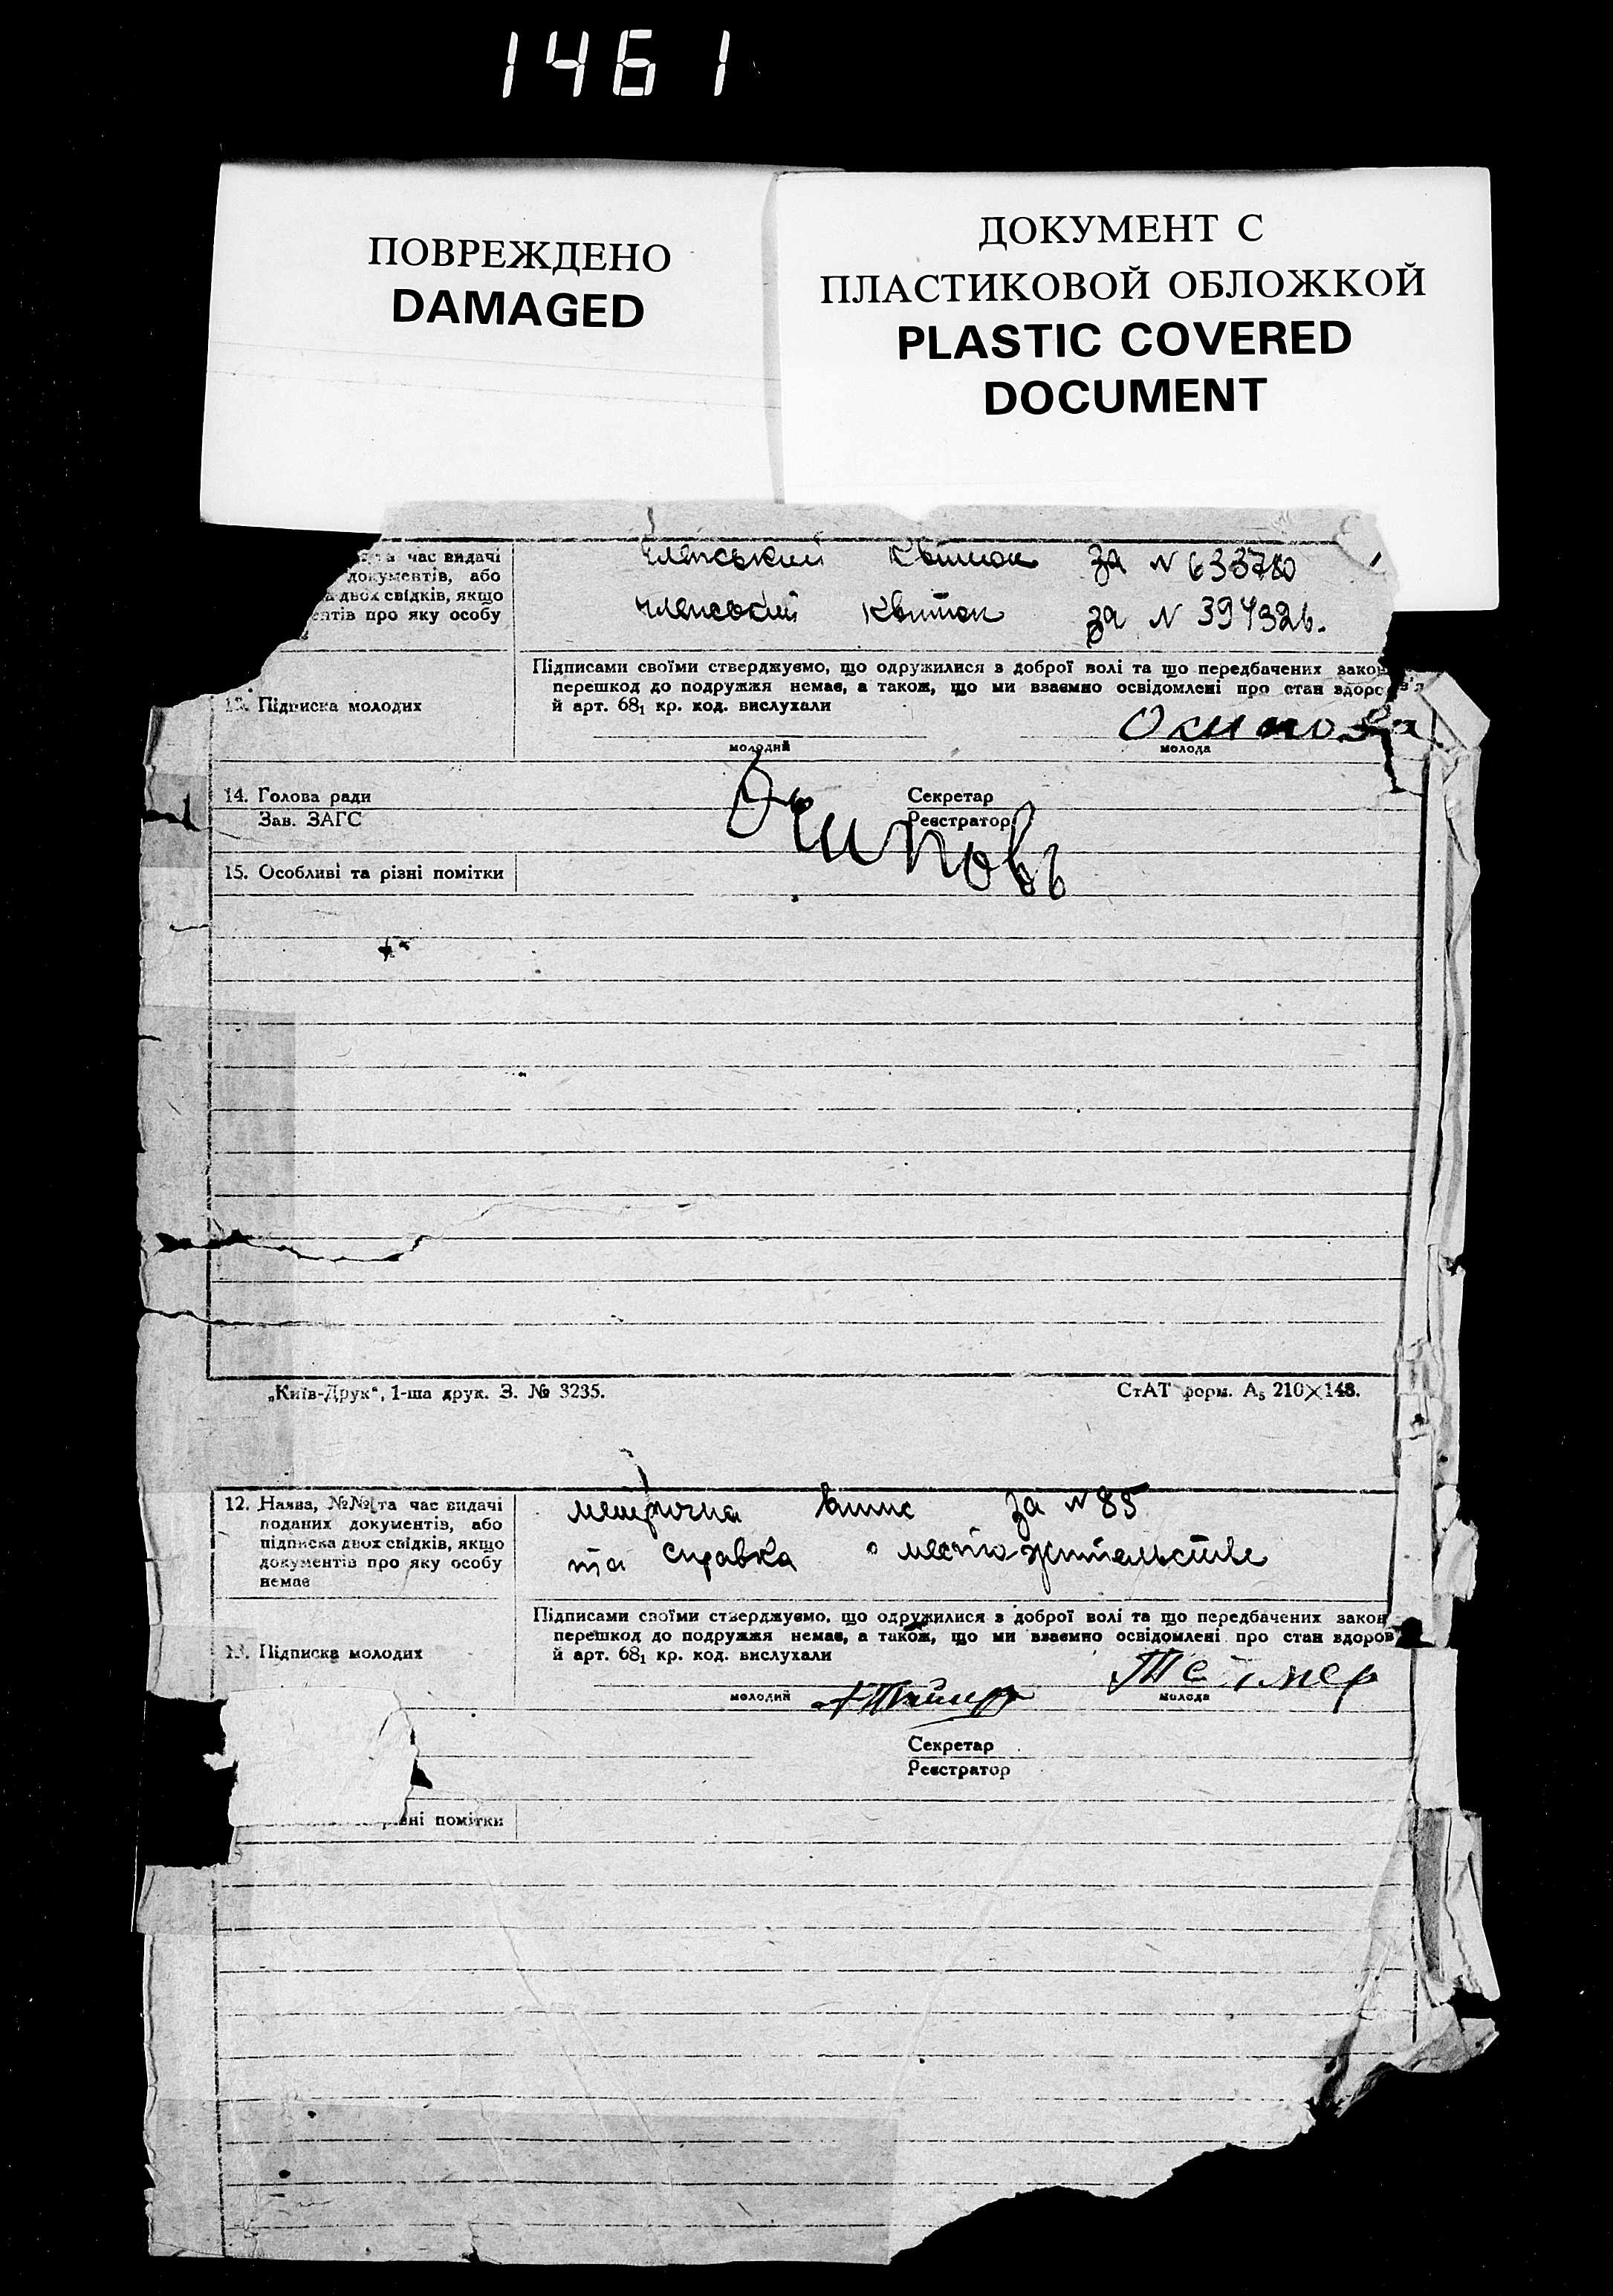 1461
ПОВРЕЖДЕНО
DAMAGED
ДОКУМЕНТ С
ПЛАСТИКОВОЙ ОБЛОЖКОЙ
PLASTIC COVERED
DOCUMENT
час видачі
документів, або
двох свідків, якщо
про яку особу
членський квиток за N 633780
членський квиток за N 394326.
Підписами своїми стверджуємо, що одружилися з доброї волі та що передбачених закон
перешкод до подружжя немає, а також, що ми взаємно освідомлені про стан здоров'я
й арт. 68₁ кр. код. вислухали
13. Підписка молодих
Осипова
молодий
молода
14. Голова ради
Зав. ЗАГС
Секретар
Реєстратор
Осиповъ
15. Особливі та різні помітки
„Київ-Друк“, 1-ша друк. З. № 3235.
СтАТ форм. А₅ 210×148.
12. Назва, №№ та час видачі
поданих документів, або
підписка двох свідків, якщо
документів про яку особу
немає
метрична випис за N 85
та справка о местожительстве
Підписами своїми стверджуємо, що одружилися з доброї волі та що передбачених закон
перешкод до подружжя немає, а також, що ми взаємно освідомлені про стан здоров
й арт. 68₁ кр. код. вислухали
13. Підписка молодих
молодий
молода
Секретар
Реєстратор
помітки